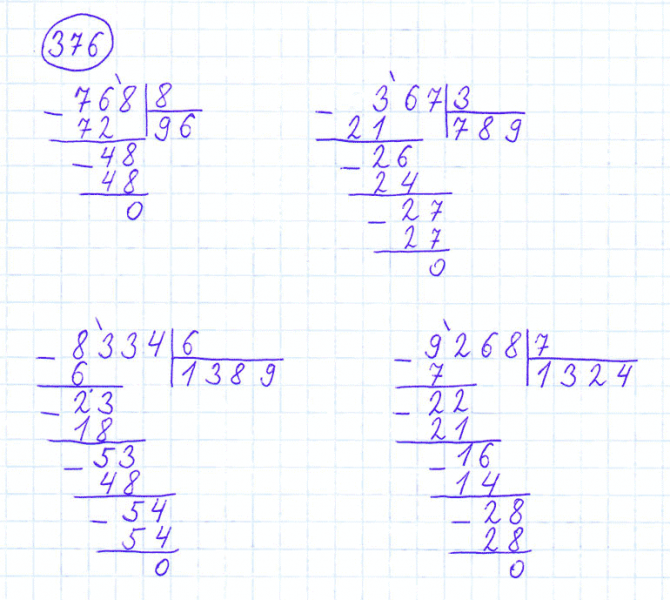 376
- 7 6 8 | 8
7 2 | 9 6
- 4 8
4 8
0
- 3 6 7 | 3
2 1 | 7 8 9
- 2 6
2 4
- 2 7
2 7
0
- 8 3 3 4 | 6
6 | 1 3 8 9
- 2 3
1 8
- 5 3
4 8
- 5 4
5 4
0
- 9 2 6 8 | 7
7 | 1 3 2 4
- 2 2
2 1
- 1 6
1 4
- 2 8
2 8
0